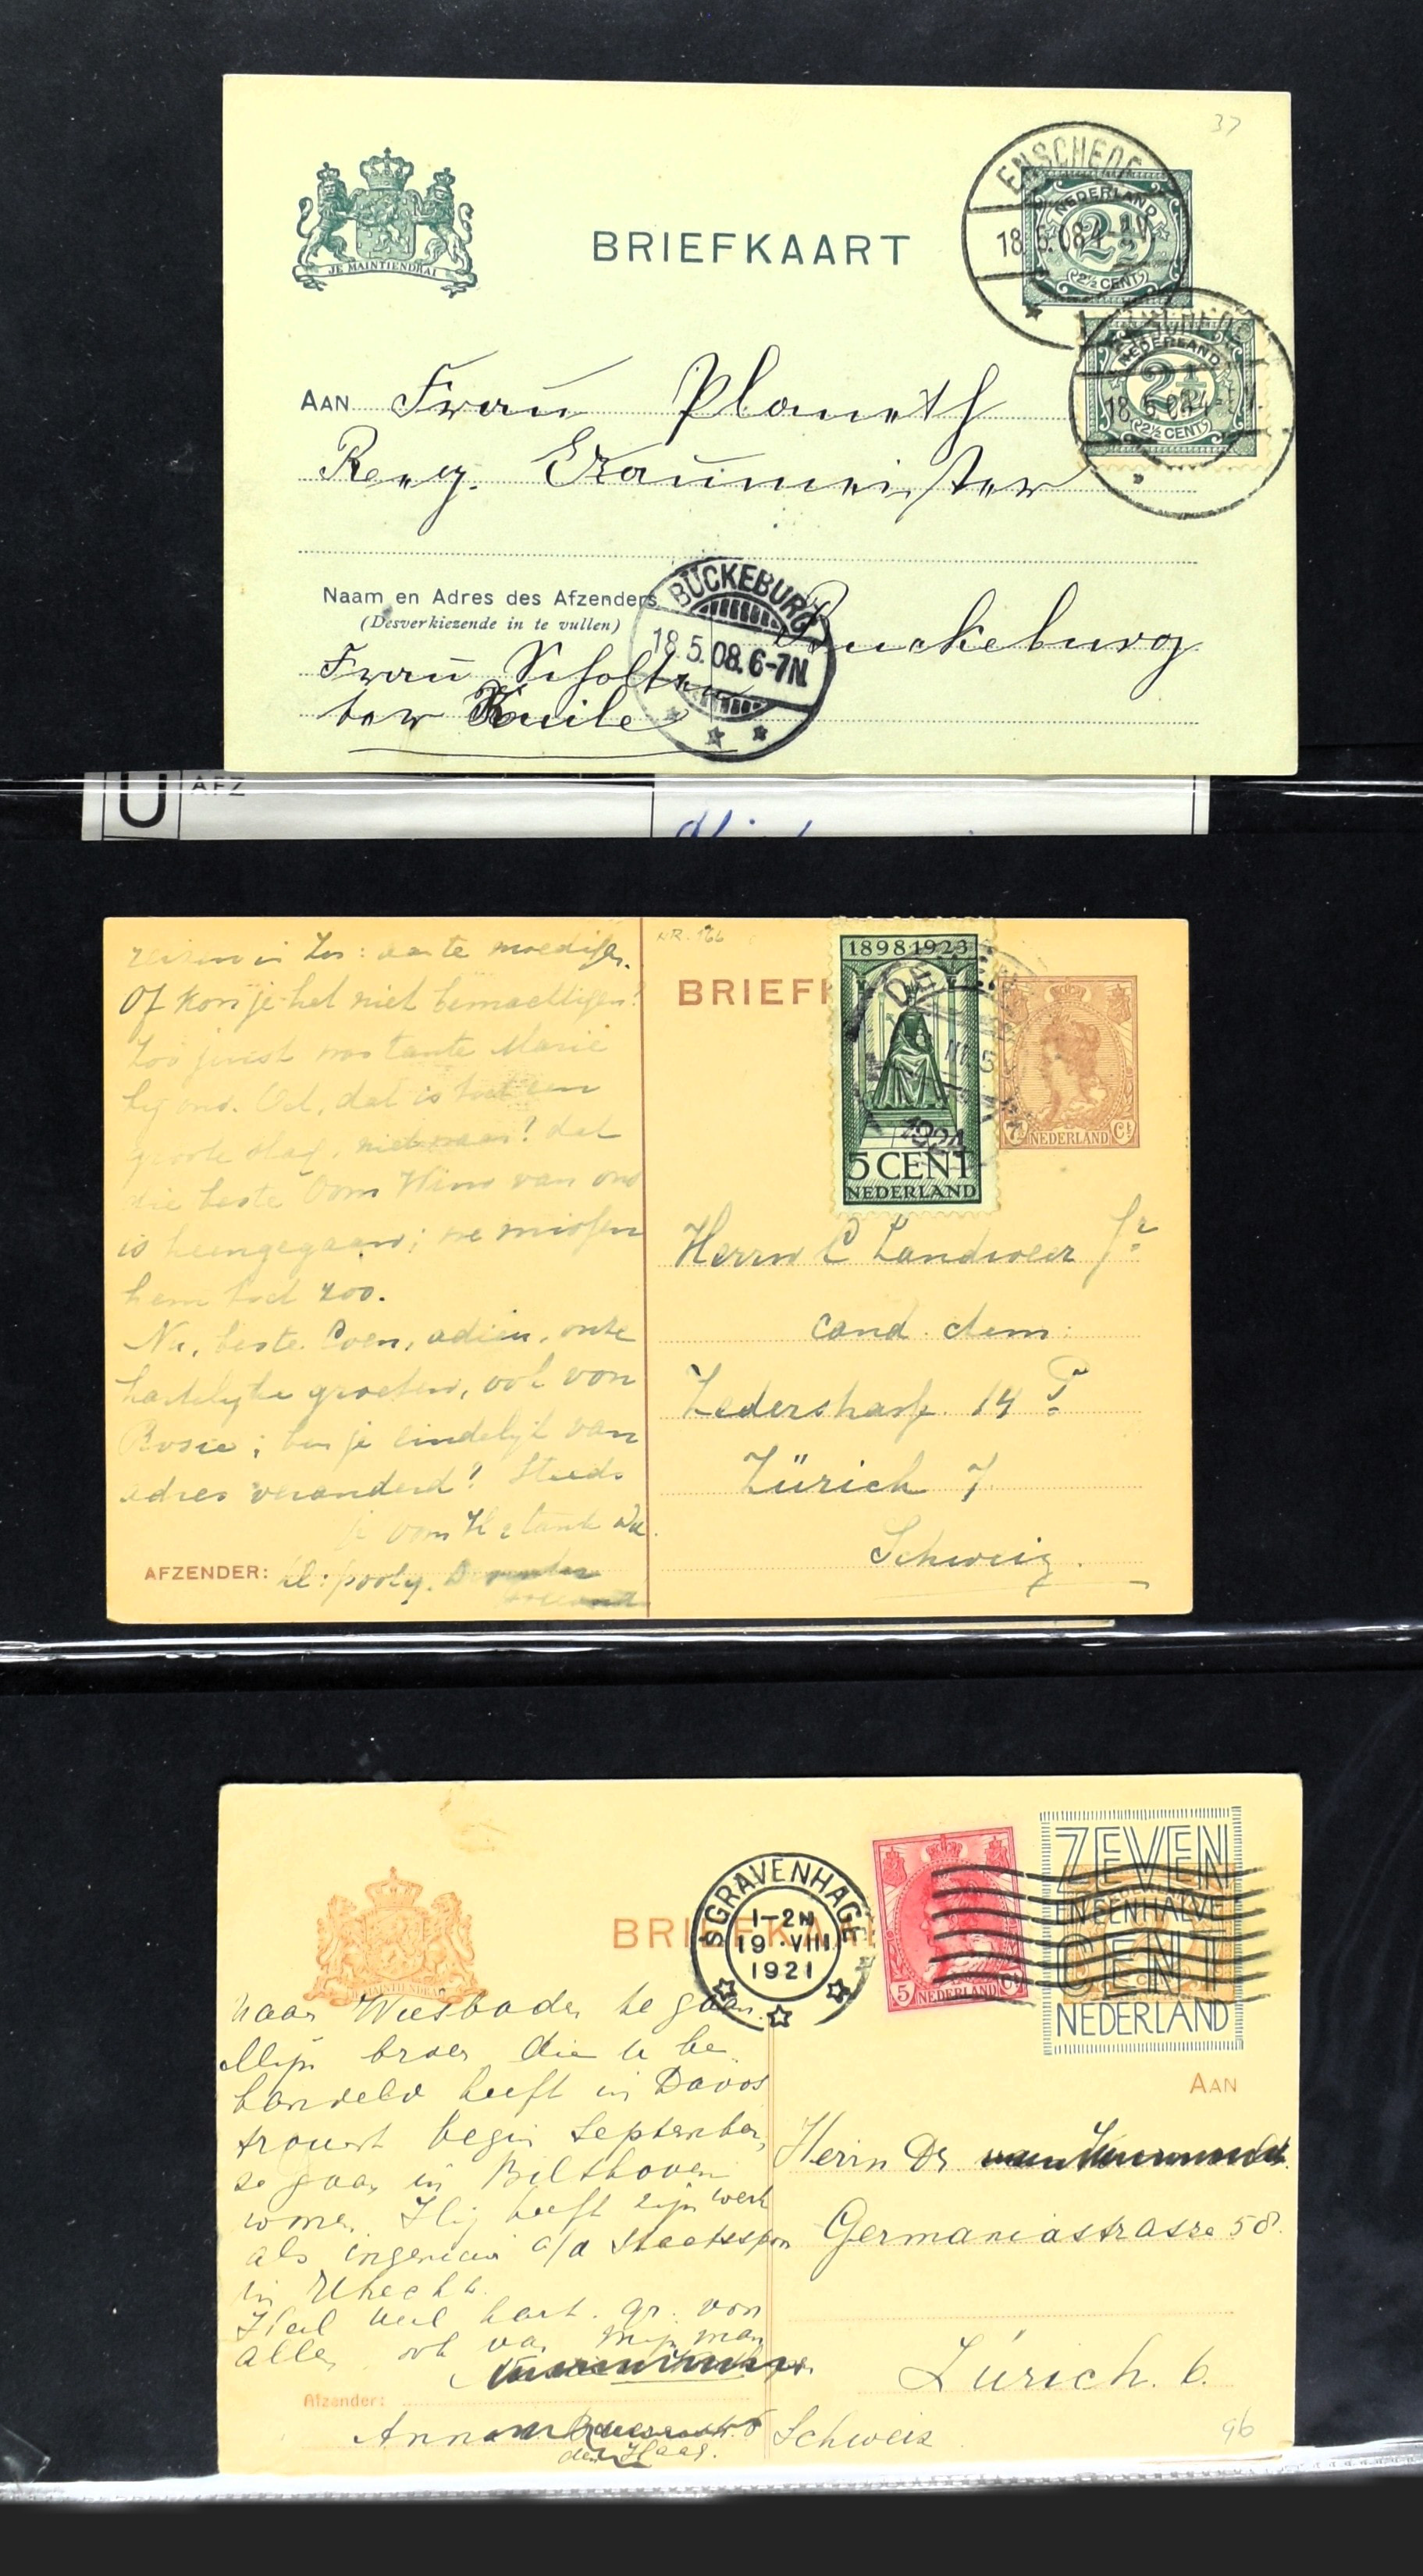 37
ENSCHEDE
18.5.08 4-5V
NEDERLAND
2½
2½ CENT
JE MAINTIENDRAI
BRIEFKAART
ENSCHEDE
NEDERLAND
2½
18.5.08 4-5V
2½ CENT
AAN Frau Planeth
Reeg.
Bückeburg
Naam en Adres des Afzenders
(Desverkiezende in te vullen)
BÜCKEBURG
18.5.08.6-7N
Frau Scholten
ter Kuile
U AFZ
NR. 166
1898 1923
BRIEFK
5 CENT
NEDERLAND
1924
7½ NEDERLAND Ct
te moedigen.
Of kon je het niet bemachtigen?
Zoo juist was tante Marie
bij ons. Och, dat is toch een
groote slag, nietwaar? dat
die beste Oom Wim van ons
is heengegaan; we missen
hem toch zoo.
Nu, beste Coen, adieu, onze
hartelijke groeten, ook van
Rosie; ben je eindelijk van
adres veranderd? Steeds
je oom H & tante
AFZENDER:
Herrn C Landweer Jr
cand. chem:
Zederstrasse 14 P
Zürich 7.
Schweiz.
BRIEFKA
'S GRAVENHAGE
1-2N
19 VIII
1921
5 NEDERLAND Ct
ZEVEN
EN EEN HALVE
CENT
NEDERLAND
JE MAINTIENDRAI
AAN
naar Wiesbaden te gaan.
Mijn broer die u be
handeld heeft in Davos
trouwt begin September,
ze gaan in Bilthoven
wonen. Hij heeft zijn werk
als ingenieur a/d Staatsspoor
in Utrecht.
Heel veel hart. gr. von
allen ook van mijn man
Afzender:
Anna
den Haag.
Herrn Dr.
Germaniastrasse 58.
Zürich. 6.
Schweiz
96